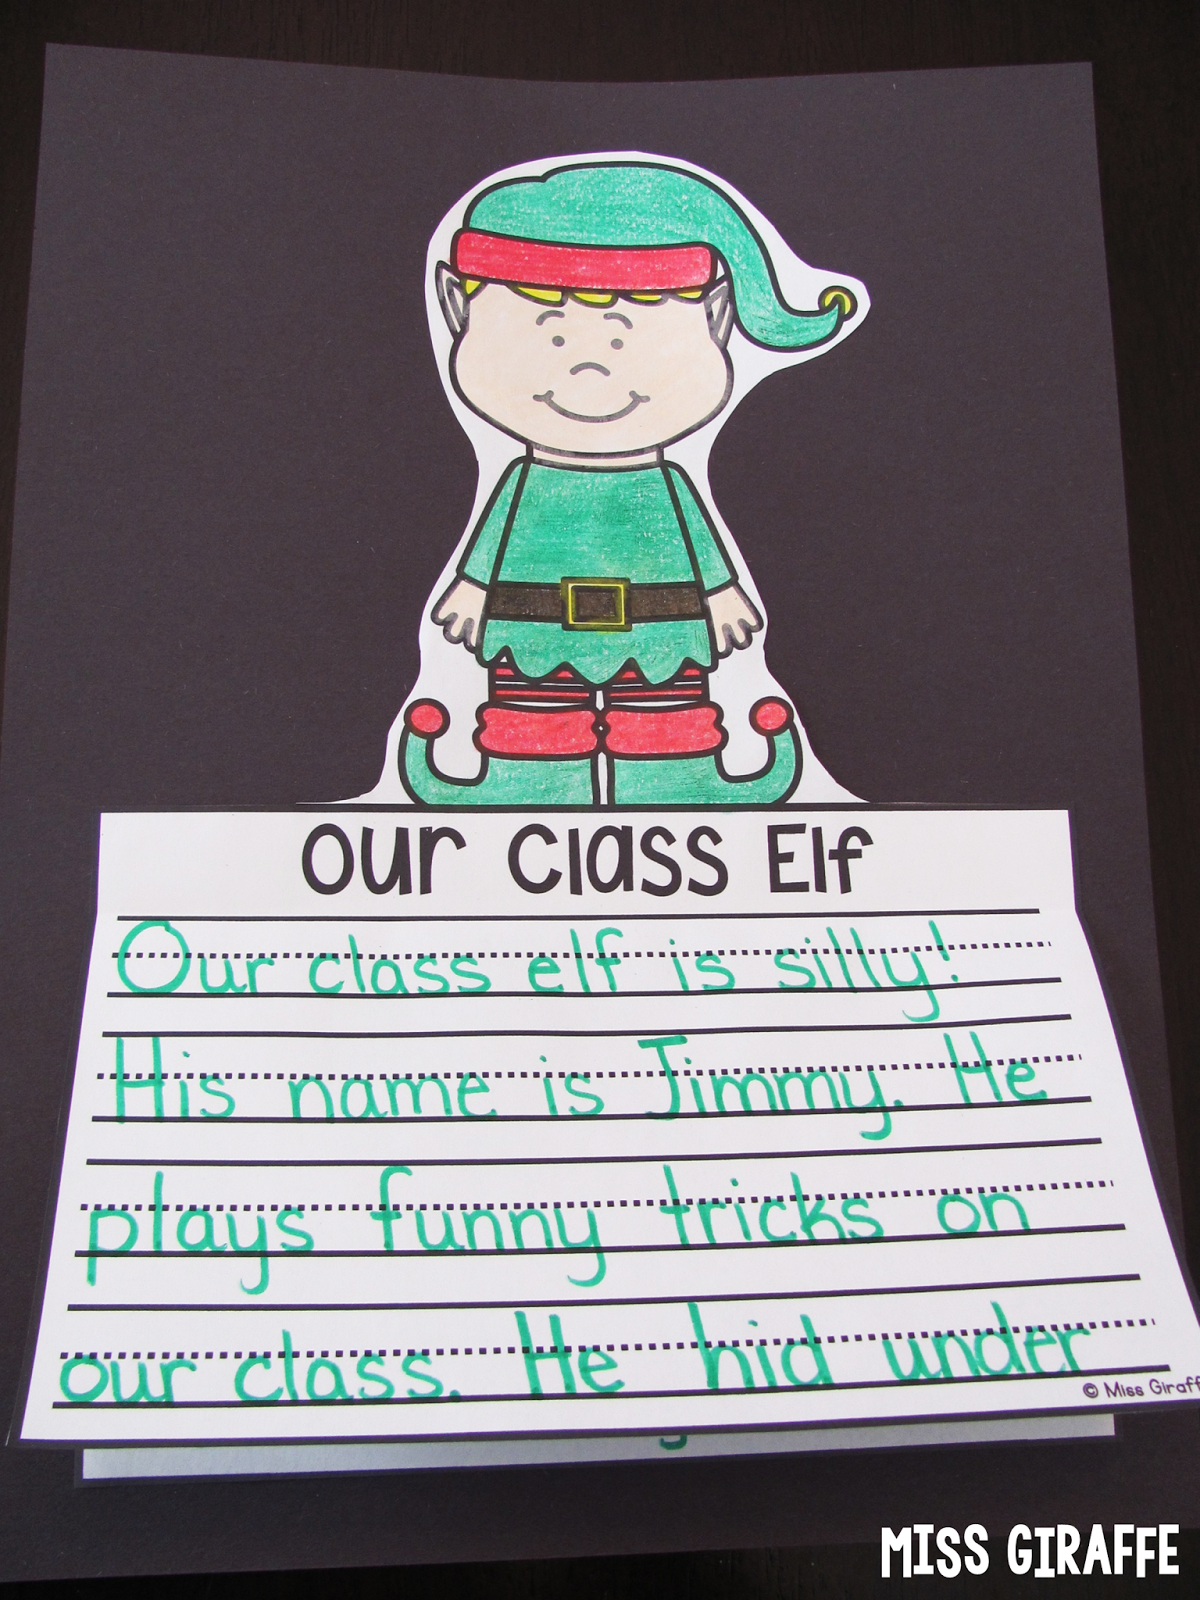 Our Class Elf
Our class elf is silly!
His name is Jimmy. He
plays funny tricks on
our class. He hid under
© Miss Giraffe
MISS GIRAFFE